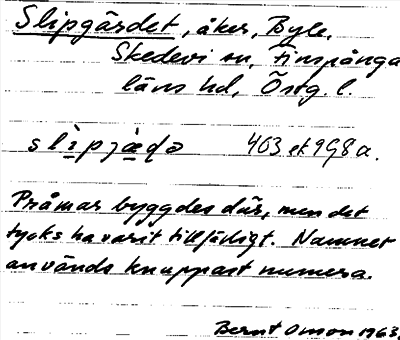 Slipgärdet, åker, Byle,
Skedevi sn, Finspånga
läns hd, Östg. l.
slìpjæ̀ḍə 463 ek 998 a.
Pråmar byggdes där, men det
tycks ha varit tillfälligt. Namnet
används knappast numera.
Bernt Oman 1963.